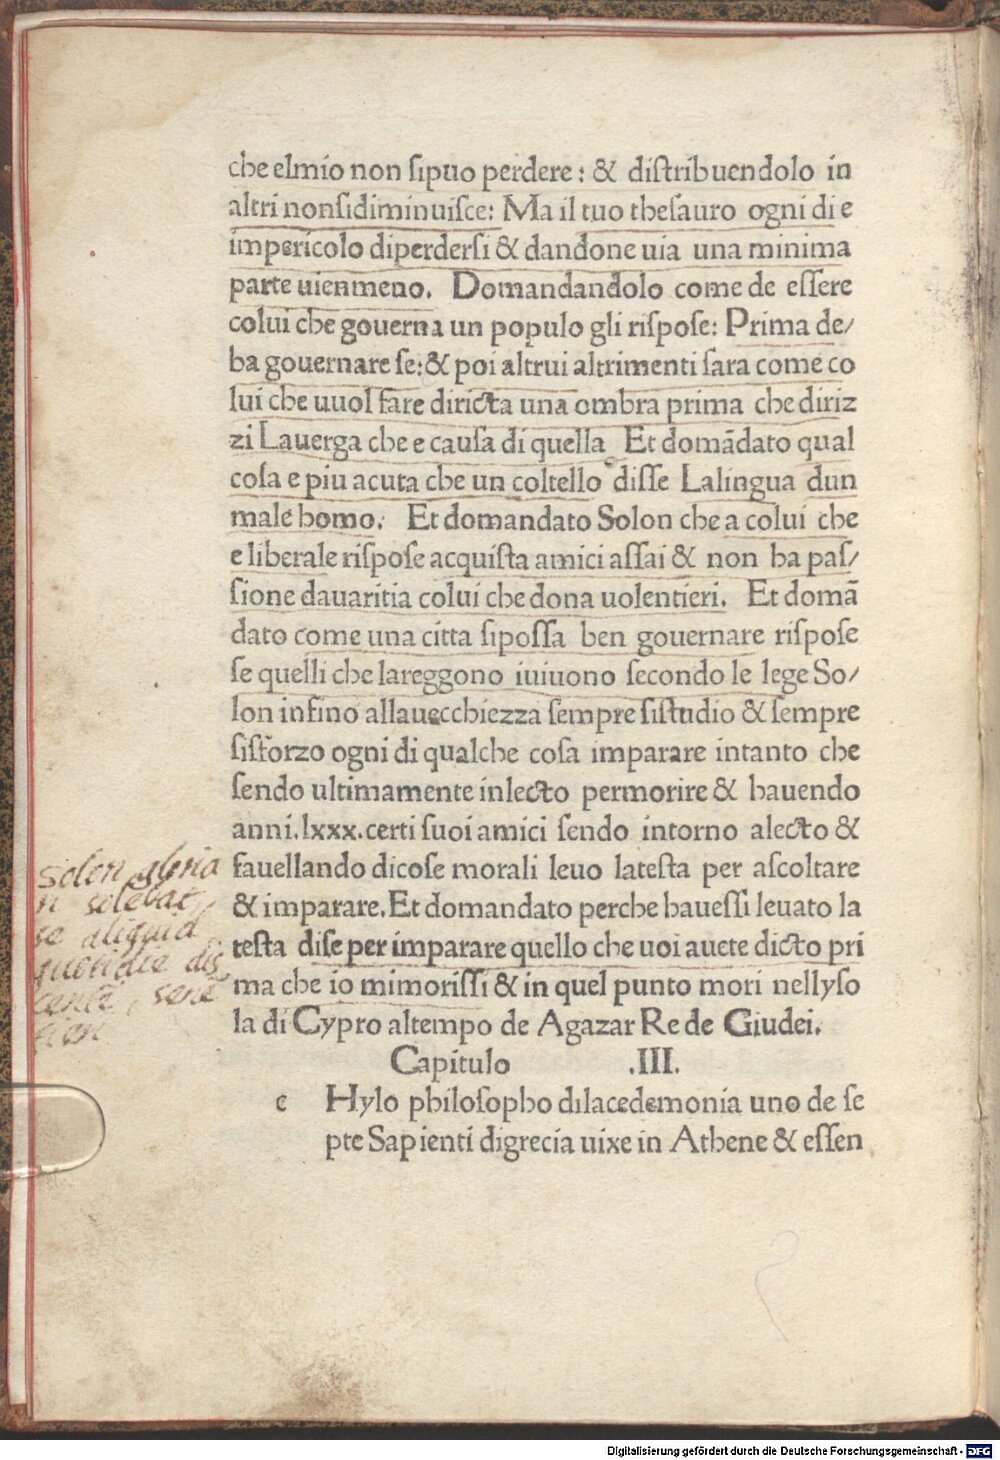 che elmio non ſipuo perdere : & diſtribuendolo in
altri nonſidiminuiſce: Ma il tuo theſauro ogni di e
impericolo diperderſi & dandone uia una minima
parte uienmeno. Domandandolo come de eſſere
colui che gouerna un populo gli riſpoſe: Prima de/
ba gouernare ſe:& poi altrui altrimenti ſara come co
lui che uuol fare diricta una ombra prima che diriz
zi Lauerga che e cauſa di quella Et domādato qual
coſa e piu acuta che un coltello diſſe Lalingua dun
male homo. Et domandato Solon che a colui che
e liberale riſpoſe acquiſta amici aſſai & non ha paſ/
ſione dauaritia colui che dona uolentieri. Et domā
dato come una citta ſipoſſa ben gouernare riſpoſe
ſe quelli che lareggono iuiuono ſecondo le lege So/
lon infino allauecchiezza ſempre ſiſtudio & ſempre
ſiſforzo ogni di qualche coſa imparare intanto che
ſendo ultimamente inlecto permorire & hauendo
anni.lxxx.certi ſuoi amici ſendo intorno alecto &
fauellando dicoſe morali leuo lateſta per aſcoltare
& imparare.Et domandato perche haueſſi leuato la
teſta diſe per imparare quello che uoi auete dicto pri
ma che io mimoriſſi & in quel punto mori nellyſo
la di Cypro altempo de Agazar Re de Giudei.
solon gloria
ri solebat
se aliquid
quotidie dis
centē, senē
fieri
Capitulo .III.
c Hylo philoſopho dilacedemonia uno de ſe
pte Sapienti digrecia uixe in Athene & eſſen
Digitalisierung gefördert durch die Deutsche Forschungsgemeinschaft - DFG